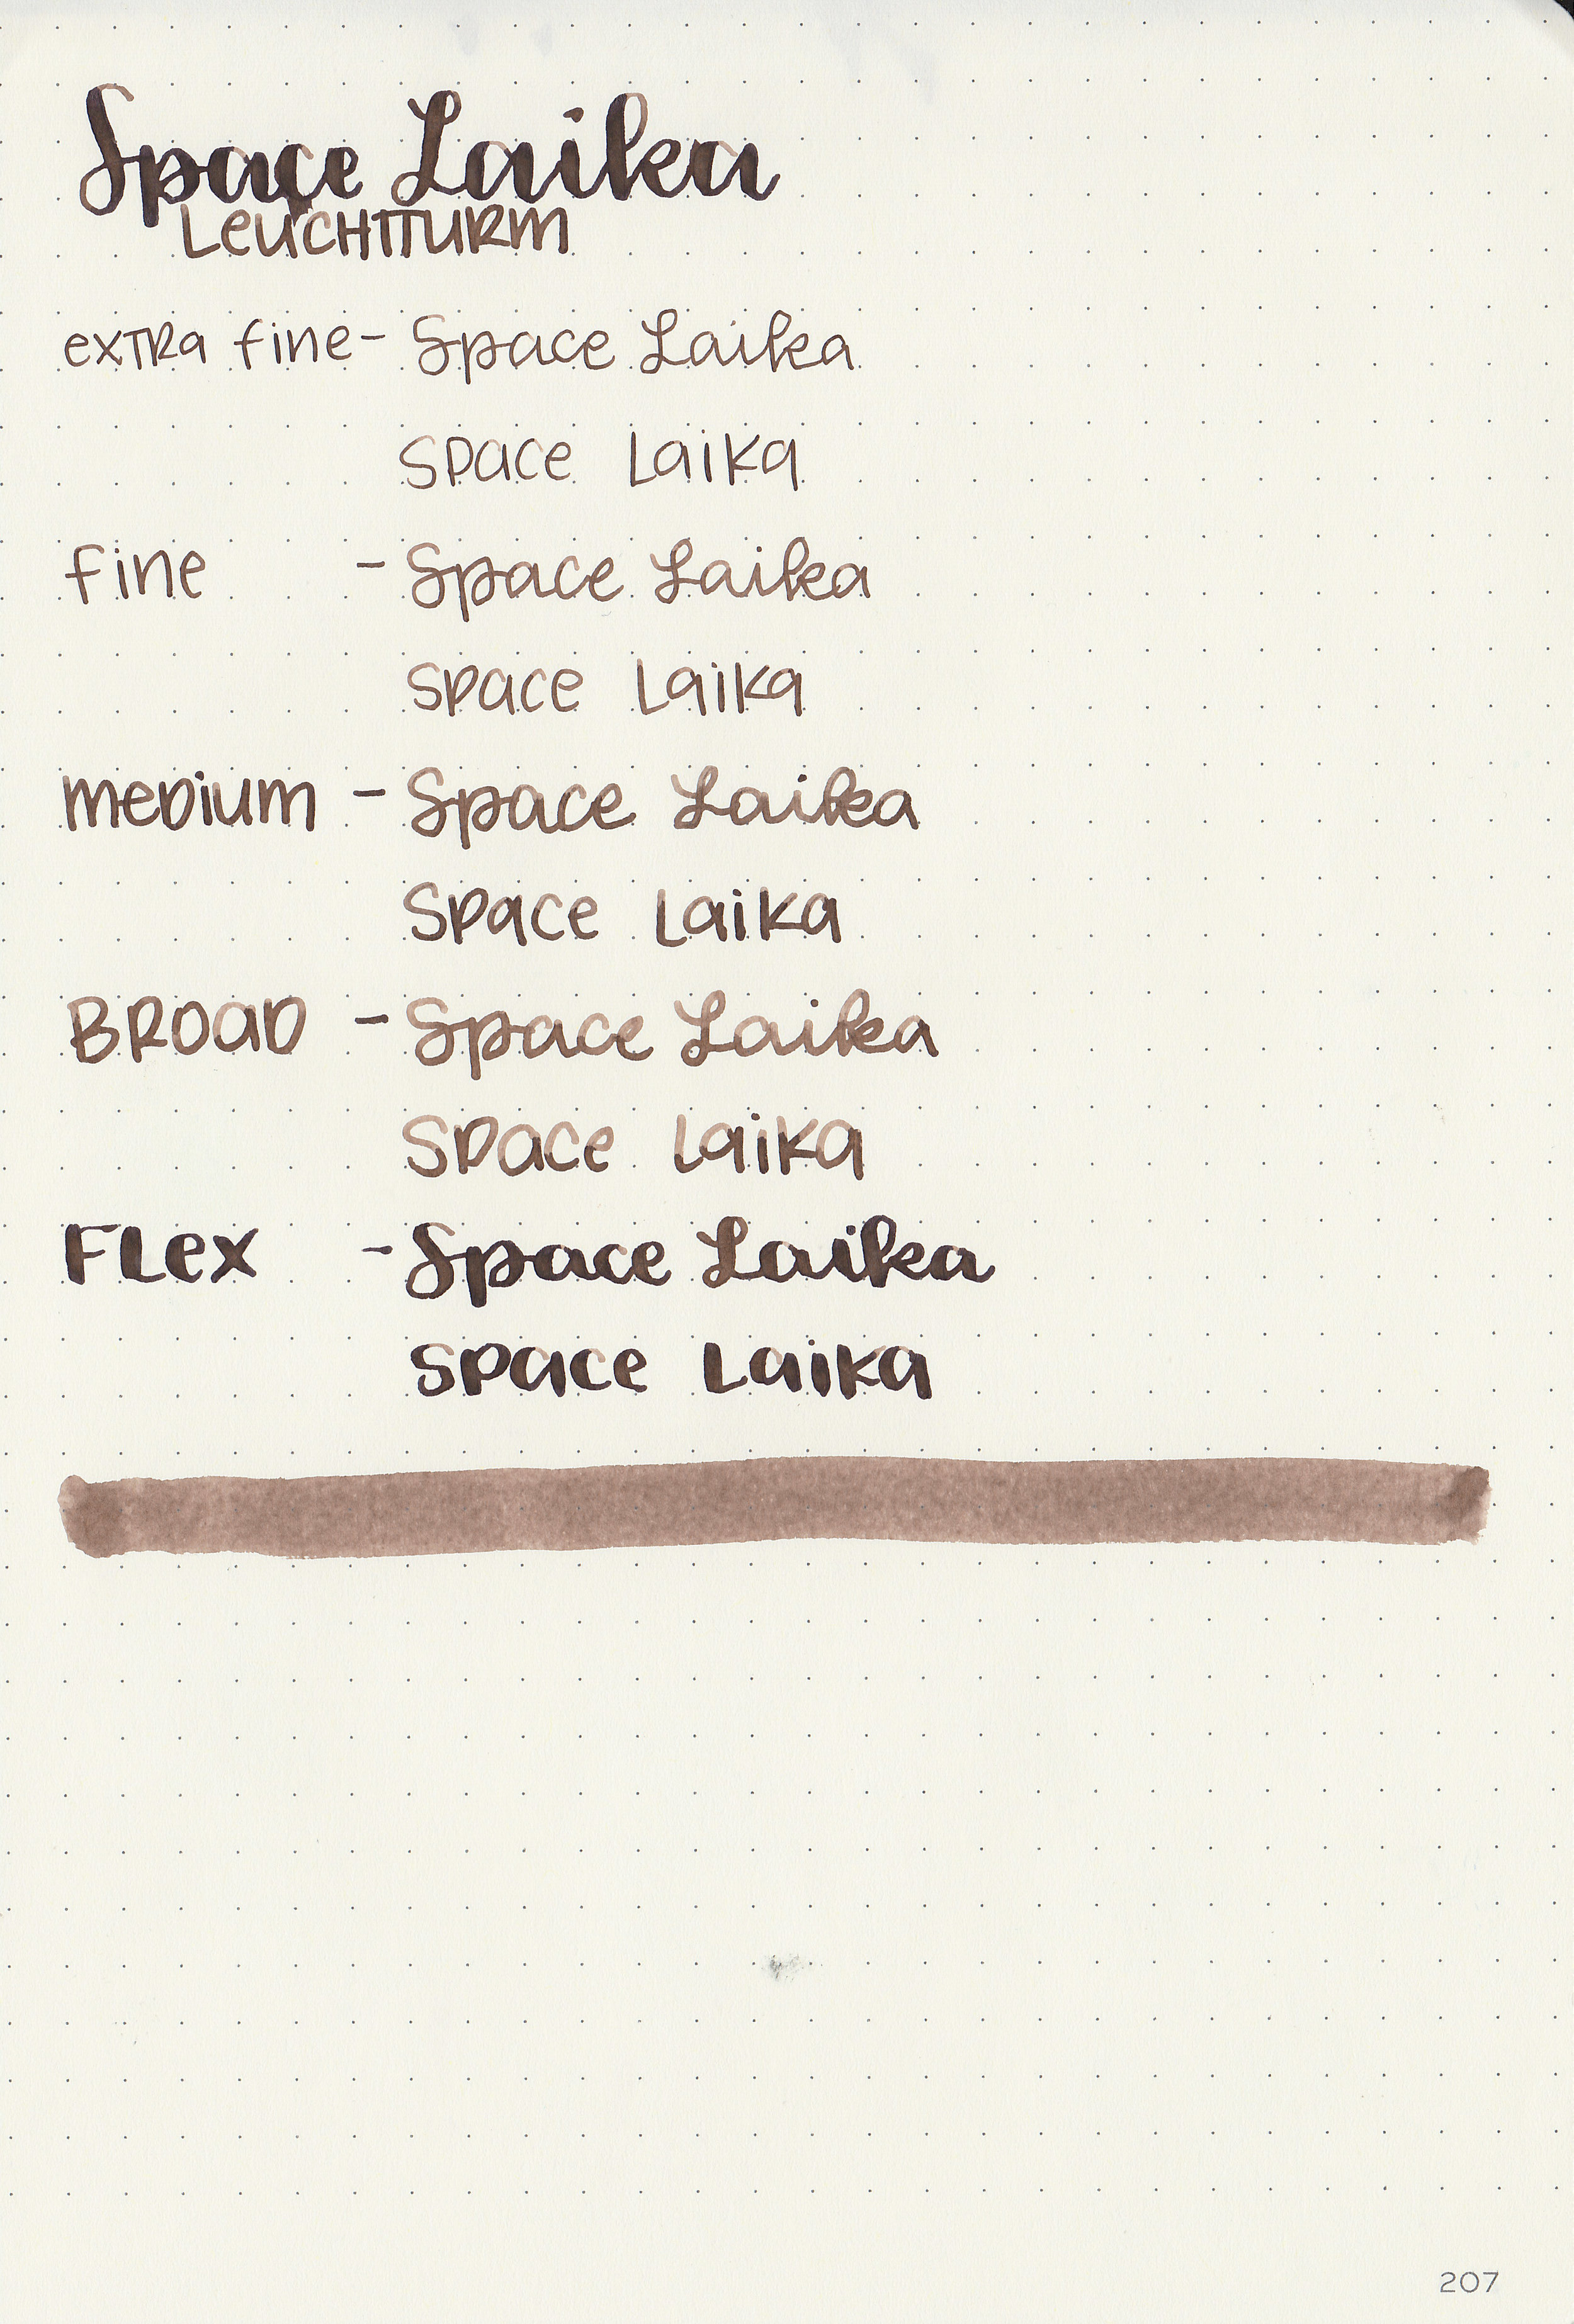 Space Laika
Leuchtturm
extra fine - Space Laika
Space Laika
fine - Space Laika
Space Laika
medium - Space Laika
Space Laika
BROAD - Space Laika
Space Laika
Flex - Space Laika
Space Laika
207